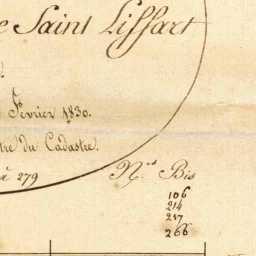 e Saint Liffart
Fevrier 1830.
tre du Cadastre.
à 279
Nos Bis
106
214
217
266